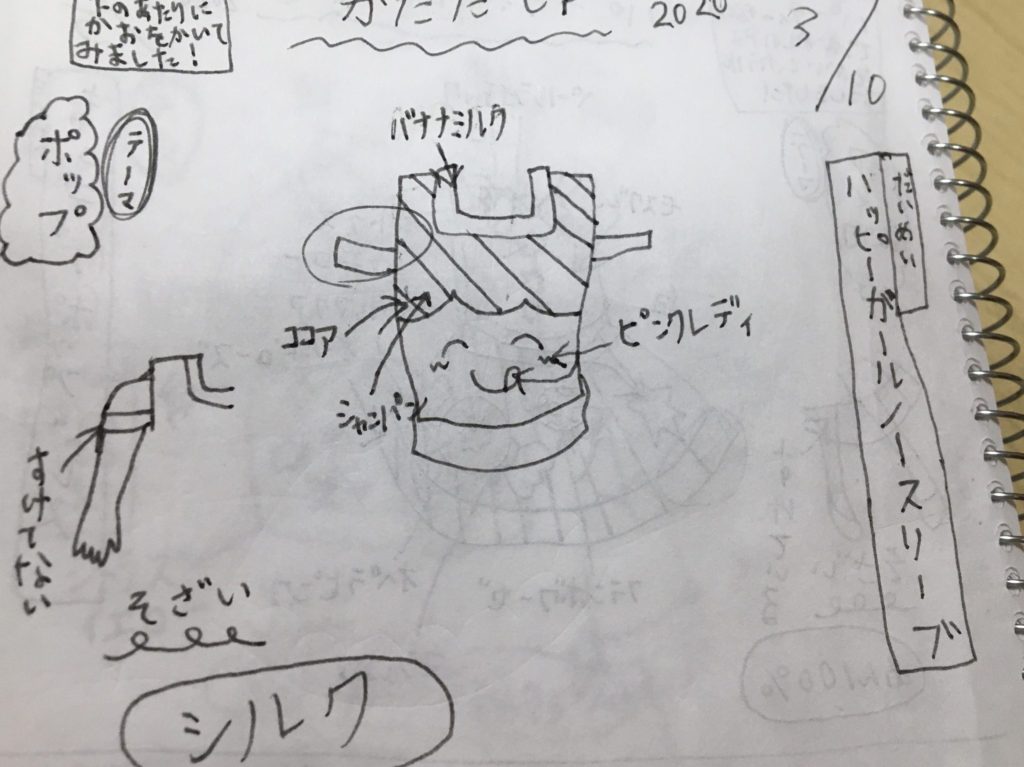 かおをかいて
みました!
2020
3/10
だいめい
ハッピーガールノースリーブ
テーマ
ポップ
バナナミルク
ココア
シャンパン
ピンクレディ
すけてない
そざい
シルク